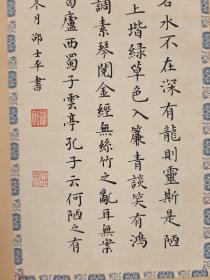 名水不在深有龍則靈斯是陋
上堦綠草色入簾青談笑有鴻
調素琴閱金經無絲竹之亂耳無案
葛廬西蜀子雲亭孔子云何陋之有
冬月邵士平書